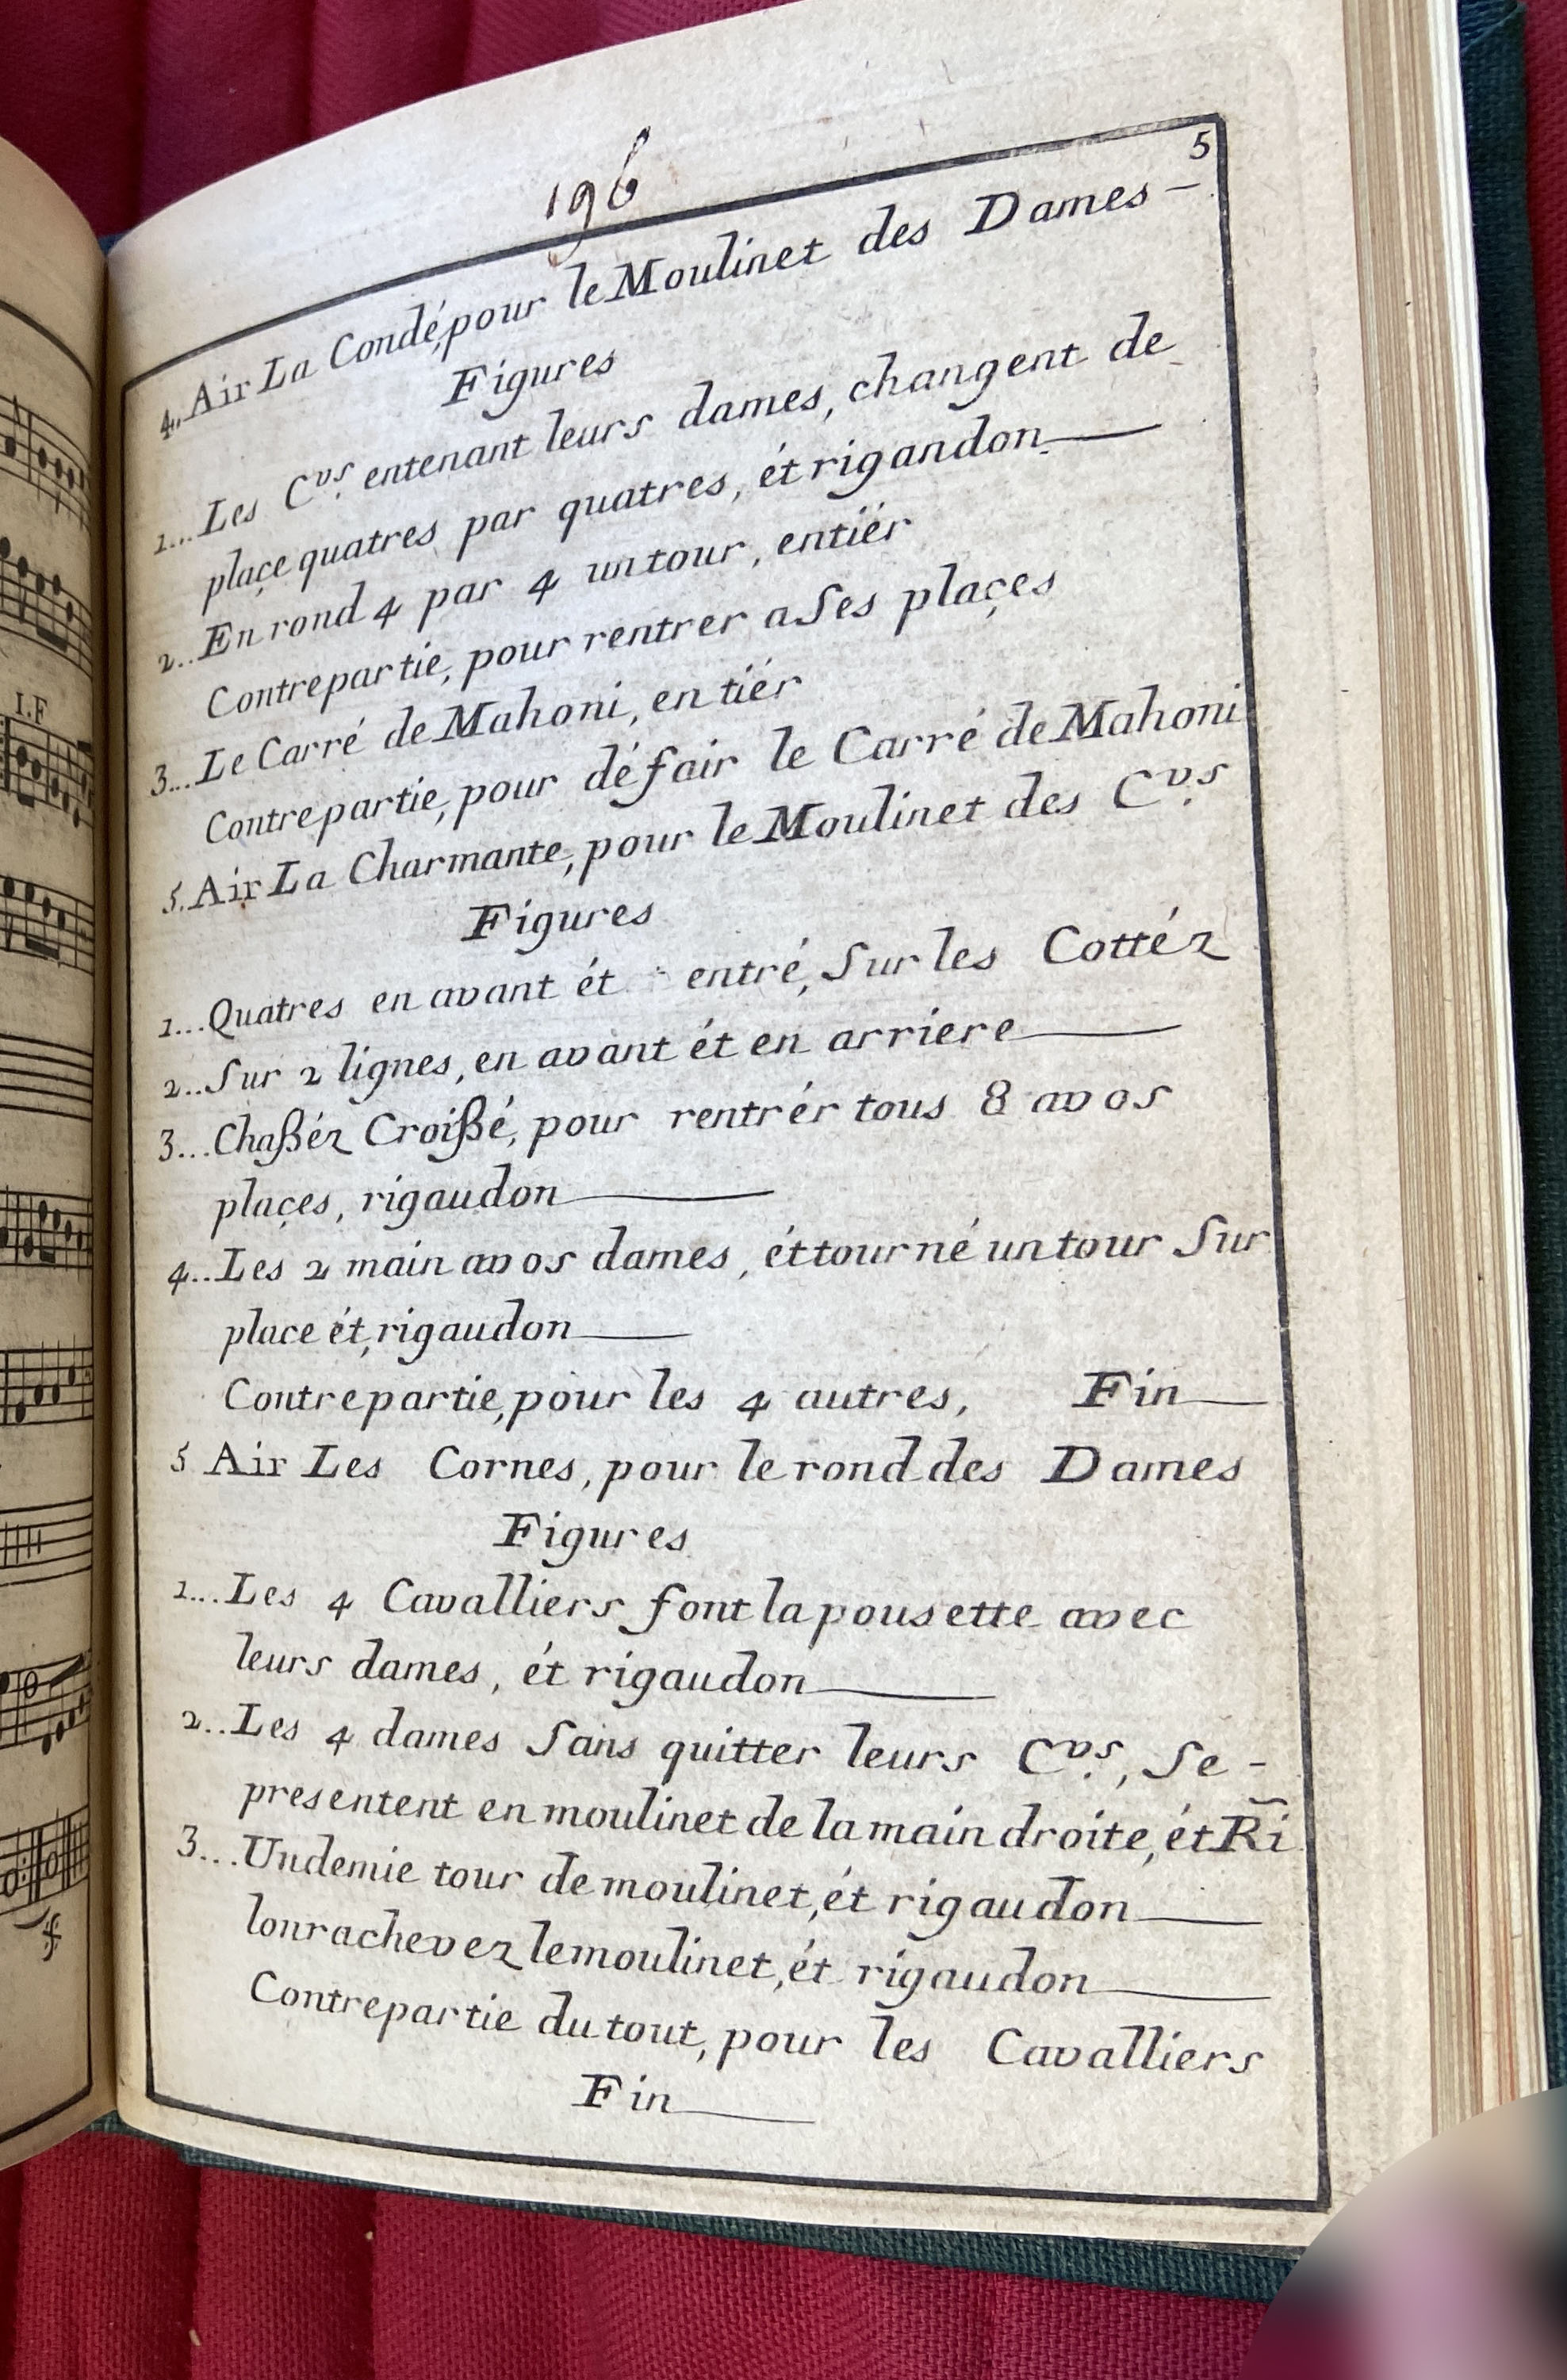 196
5
4. Air La Condé, pour le Moulinet des Dames —
Figures
1... Les Cvs. entenant leurs dames, changent de
plaçe quatres par quatres, ét rigandon
2.. En rond 4 par 4 un tour, entiér
Contrepartie, pour rentrer a Ses plaçes
3... Le Carré de Mahoni, entiér
Contrepartie, pour défair le Carré de Mahoni
5. Air La Charmante, pour le Moulinet des Cvs.
Figures
1... Quatres en avant ét entré, Sur les Cottéz
2.. Sur 2 lignes, en avant ét en arriere
3... Chaßéz Croißé, pour rentrér tous 8 avos
plaçes, rigaudon
4.. Les 2 main avos dames, ét tourné un tour Sur
place ét, rigaudon
Contrepartie, pour les 4 autres, Fin
5 Air Les Cornes, pour le rond des Dames
Figures
1... Les 4 Cavalliers font la pousette avec
leurs dames, ét rigaudon
2.. Les 4 dames Sans quitter leurs Cvs., Se -
presentent en moulinet de la main droite, ét Ri
3... Undemie tour de moulinet, ét rigaudon
lonrachevez lemoulinet, ét rigaudon
Contrepartie du tout, pour les Cavalliers
Fin
I.F